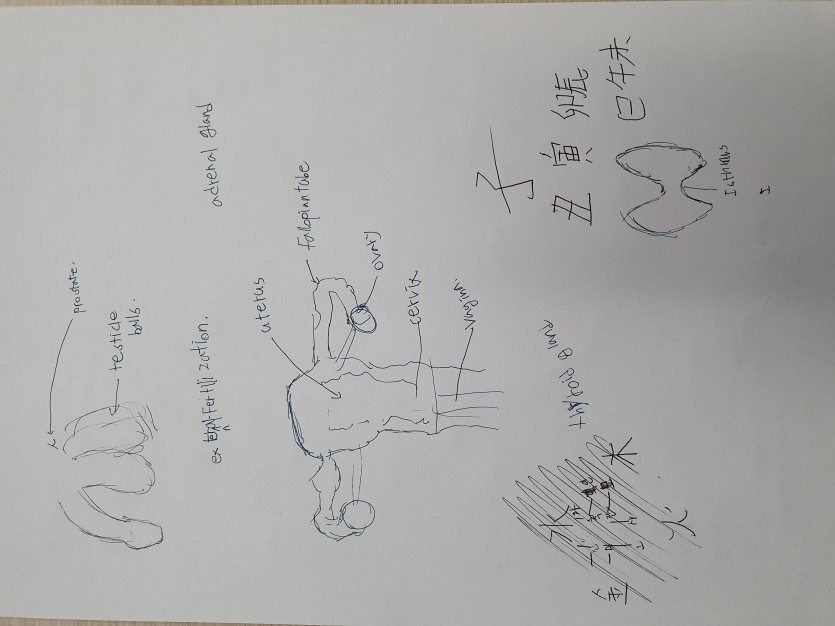 prostate.
testicle
balls.
fertilization.
adrenal gland
uterus
Fallopian tube
ovary
cervix
vagina.
thyroid gland
Isthmus
I
子
丑 寅 卯 辰
巳 午 未
水
木
火
金